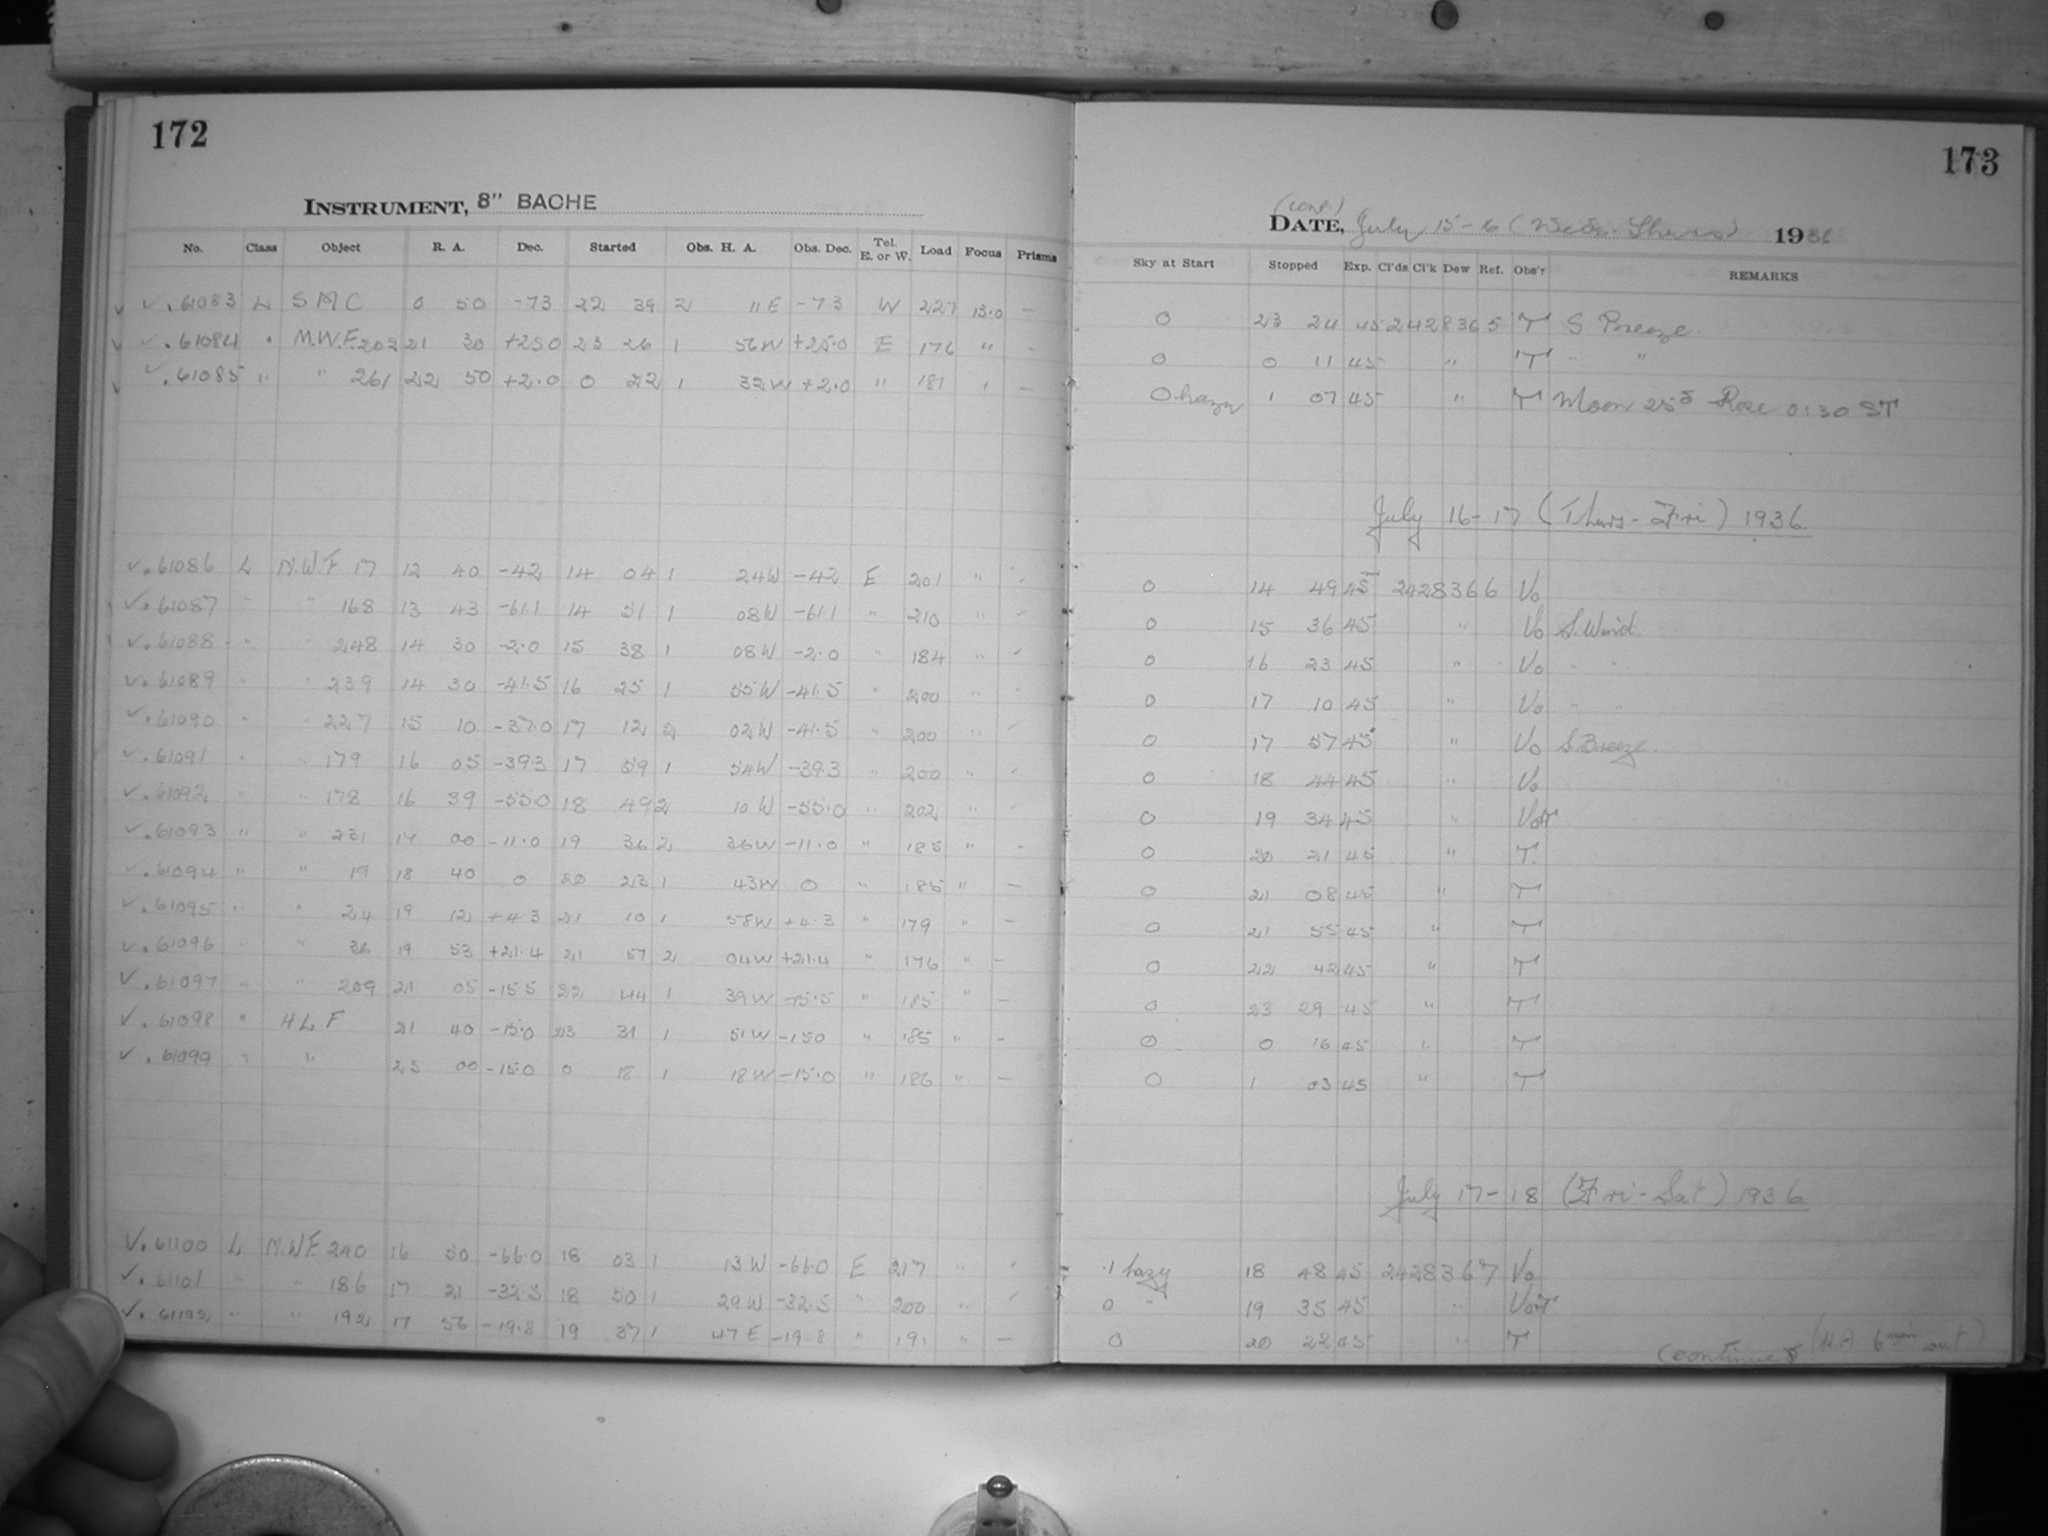 172
INSTRUMENT, 8" BACHE
No. Class Object R. A. Dec. Started Obs. H. A. Obs. Dec. Tel. E. or W. Load Focus Prisms
✓ . 61083 L SMC 0 50 -73 22 39 2 11 E -73 W 227 13.0 -
✓ . 61084 " M.W.F. 202 21 30 +25.0 23 26 1 56 W +25.0 E 176 " -
✓ . 61085 " " 261 22 50 +2.0 0 22 1 32 W +2.0 " 181 " -
✓ . 61086 L M.W.F 17 12 40 -42 14 04 1 24 W -42 E 201 " -
✓ . 61087 " " 168 13 43 -61.1 14 51 1 08 W -61.1 " 210 " -
✓ . 61088 " " 248 14 30 -2.0 15 38 1 08 W -2.0 " 184 " -
✓ . 61089 " " 239 14 30 -41.5 16 25 1 55 W -41.5 " 200 " -
✓ . 61090 " " 227 15 10 -37.0 17 12 2 02 W -41.5 " 200 " -
✓ . 61091 " " 179 16 05 -39.3 17 59 1 54 W -39.3 " 200 " -
✓ . 61092 " " 178 16 39 -55.0 18 49 2 10 W -55.0 " 202 " -
✓ . 61093 " " 231 17 00 -11.0 19 36 2 36 W -11.0 " 185 " -
✓ . 61094 " " 19 18 40 0 20 23 1 43 W 0 " 185 " -
✓ . 61095 " " 24 19 12 +4.3 21 10 1 58 W +4.3 " 179 " -
✓ . 61096 " " 36 19 53 +21.4 21 57 2 04 W +21.4 " 176 " -
✓ . 61097 " " 209 21 05 -15.5 22 44 1 39 W -15.5 " 185 " -
✓ . 61098 " H L F 21 40 -15.0 23 31 1 51 W -15.0 " 185 " -
✓ . 61099 " " 23 00 -15.0 0 18 1 18 W -15.0 " 186 " -
✓ . 61100 L M.W.F. 240 16 50 -66.0 18 03 1 13 W -66.0 E 217 " -
✓ . 61101 " " 186 17 21 -32.5 18 50 1 29 W -32.5 " 200 " -
✓ . 61102 " " 192 17 56 -19.8 19 37 1 47 E -19.8 " 191 " -
173
(cont.)
DATE, July 15-16 (Weds.-Thurs) 1936
Sky at Start Stopped Exp. Cl'ds Cl'k Dew Ref. Obs'r REMARKS
0 23 24 45 2428365 T S Breeze.
0 0 11 45 " T " "
0 hazy 1 07 45 " T Moon 25d Rose 0:30 ST
July 16-17 (Thurs-Fri) 1936.
0 14 49 45 2428366 Vo
0 15 36 45 " Vo S. Wind.
0 16 23 45 " Vo " "
0 17 10 45 " Vo " "
0 17 57 45 " Vo S. Breeze.
0 18 44 45 " Vo
0 19 34 45 " Vo&T
0 20 21 45 " T.
0 21 08 45 " T
0 21 55 45 " T
0 22 42 45 " T
0 23 29 45 " T
0 0 16 45 " T
0 1 03 45 " T
July 17-18 (Fri-Sat) 1936
.1 hazy 18 48 45 2428367 Vo
0 " 19 35 45 " Vo&T
0 20 22 45 " T (H.A. 6 min out)
(continued